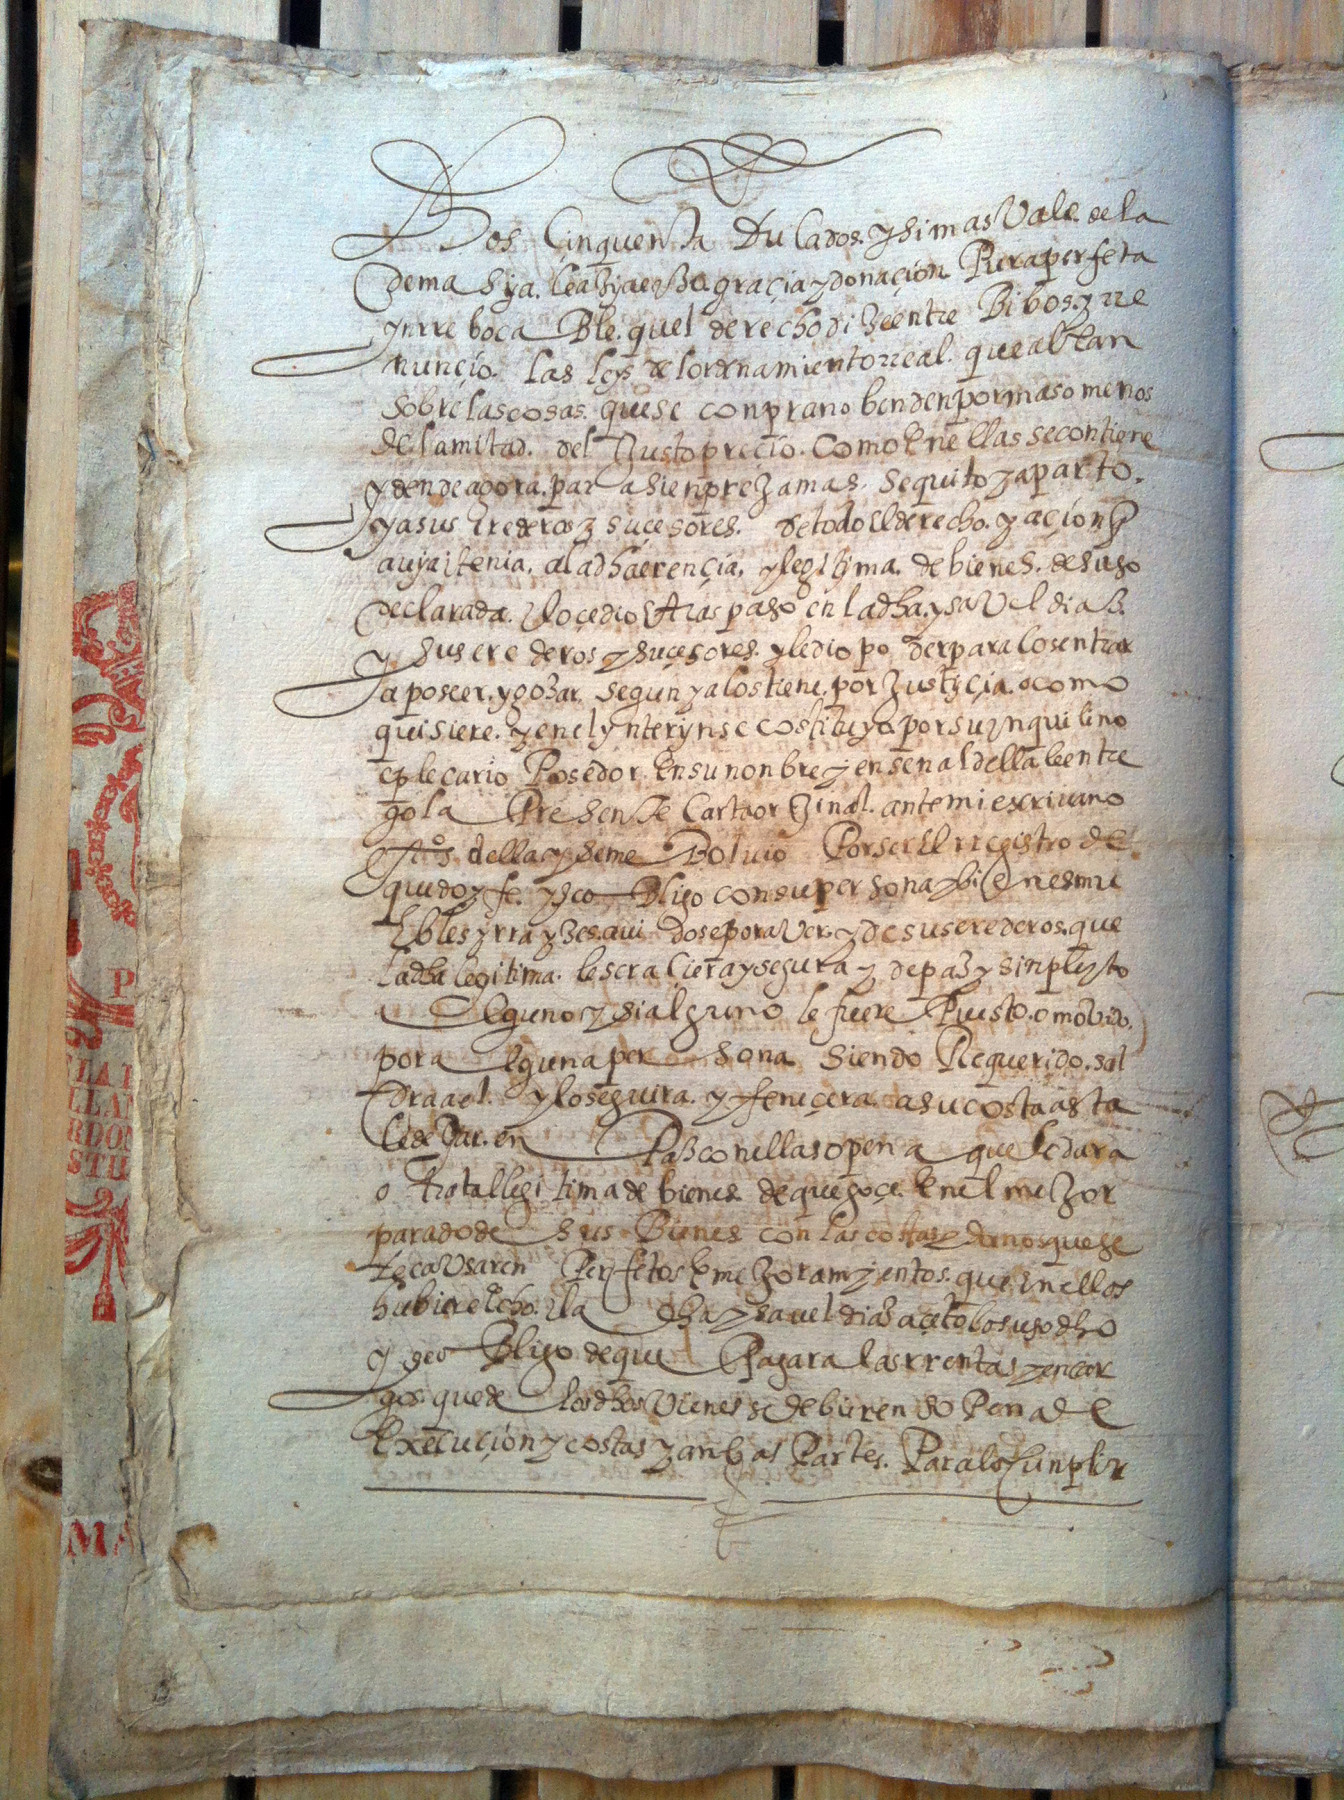 Dos Cinquenta Ducados. y si mas Vale. de la
demasiya. le aziaenzo. graçia y donaçion Pura perfeta
ynrreboca Ble. quel derecho dize entre Bibos. y rre
nunçio. las leys del ordenamiento rreal. que ablan
sobre las cosas. que se conpran o benden por mas o menos
de la mitad. del Justo preçio. Como En ellas se contiene
y dende agora. para sienpre Jamas. se quito y aparto.
y a sus Erederos y suçesores. de todo El derecho. y açion q
auia i tenia. a la dha erençia. y legitima. de bienes. de suso
declarada. y lo çedio y traspaso en la dha. ysavel diaz.
y sus erederos y suçesores. y le dio poder para los entrar
a poseer. y gozar. segun ya los tiene. por Justiçia. o como
quisiere. y en el ynteryn se costituyo por su ynquilino
e Posedor En su nonbre y en señal della le entre
go la Presente Carta orijinal. ante mi escriuano
della y se me Boluio Por ser El rregistro de
que doy fe. y se o Bligo con su persona y bienes mu
Ebles y rrayzes. auidos e por aver. y de sus erederos. que
la dha legitima. le sera çierta y segura y de paz y sin pleyto
alguno y si alguno le fuere Puesto. o mobido.
por alguna persona siendo Requerido. sal
dra a el. y lo seguira. y feneçera. a su costa asta
le dejar. en Paz con ella so pena que le dara
otra tal legitima de bienes de que goçe En el mejor
parado de sus Bienes con las costas y daños que se
le causaren Perfetos E mejoramyentos. que en ellos
hubiere Echo. i la dha ysavel diaz açeto lo suso dho
y se o Bligo de que Pagara las rrentas y encar
gos que de los dhos Vienes se debieren so Pena de
Execuçion y costas y anbas Partes. Para lo cunplir
P
LA
LLA
RDO
STI
MA